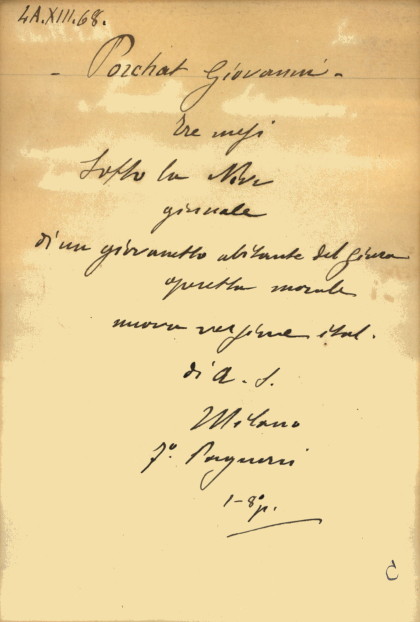 4A.XIII.68.
- Porchat Giovanni -
Tre mesi
Sotto la Neve
giornale
di un giovanetto abitante del giura
operetta morale
nuova versione ital.
di A. S.
Milano
F. Pagnoni
1-8º p.
C